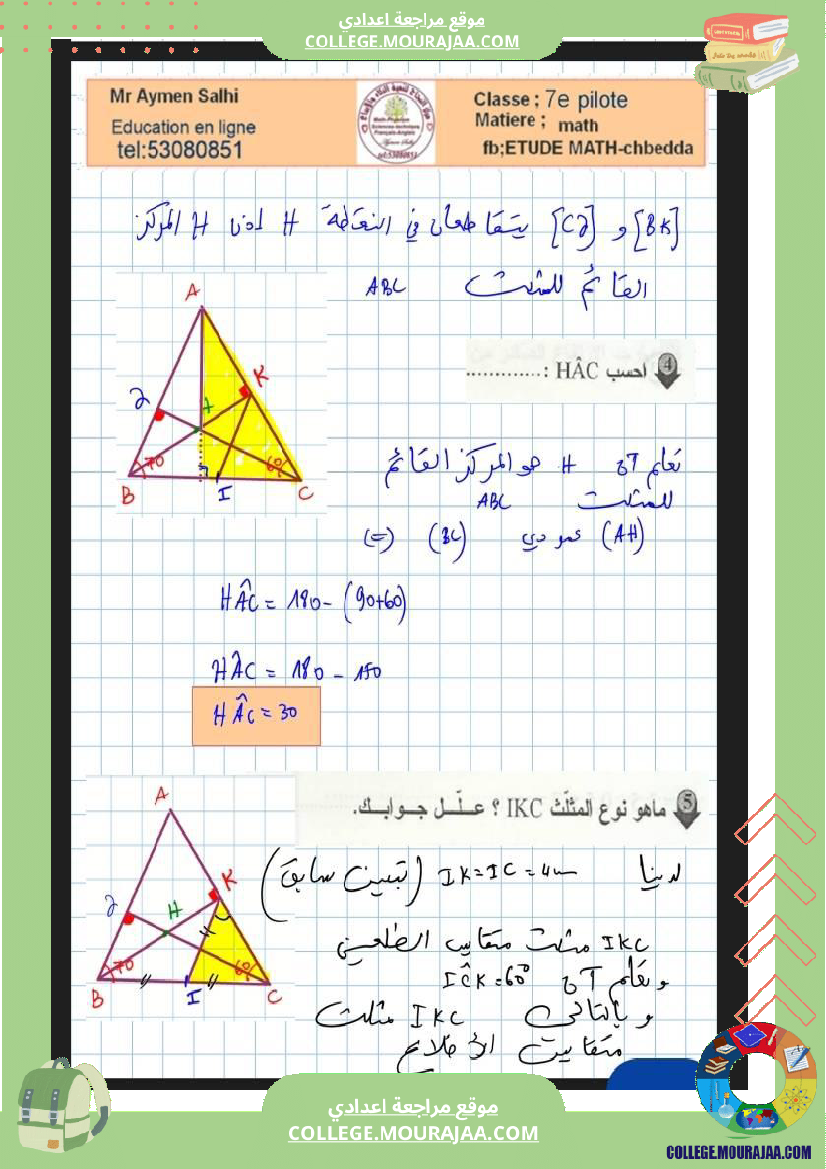 موقع مراجعة اعدادي
COLLEGE.MOURAJAA.COM
Mr Aymen Salhi
Education en ligne
tel:53080851
Classe ; 7e pilote
Matiere ; math
fb;ETUDE MATH-chbedda
[BK] و [CJ] يتقاطعان في النقطة H اذن H المركز
القائم للمثلث ABC
A
K
J
B
70
I
60
C
4 احسب HÂC :.............
نعلم أن H هو المركز القائم
للمثلث ABC
(AH) عمودي (BC) (=)
HÂC = 180 - (90+60)
HÂC = 180 - 150
HÂC = 30
5 ماهو نوع المثلّث IKC ؟ علّـل جـوابـك.
A
K
J
H
B
70
I
60
C
لدينا IK = IC = 4cm (تبيين سابق)
IKC مثلث متقايس الضلعين
و نعلم أن IĈK = 60°
و بالتالي IKC مثلث
متقايس الأضلاع
موقع مراجعة اعدادي
COLLEGE.MOURAJAA.COM
COLLEGE.MOURAJAA.COM